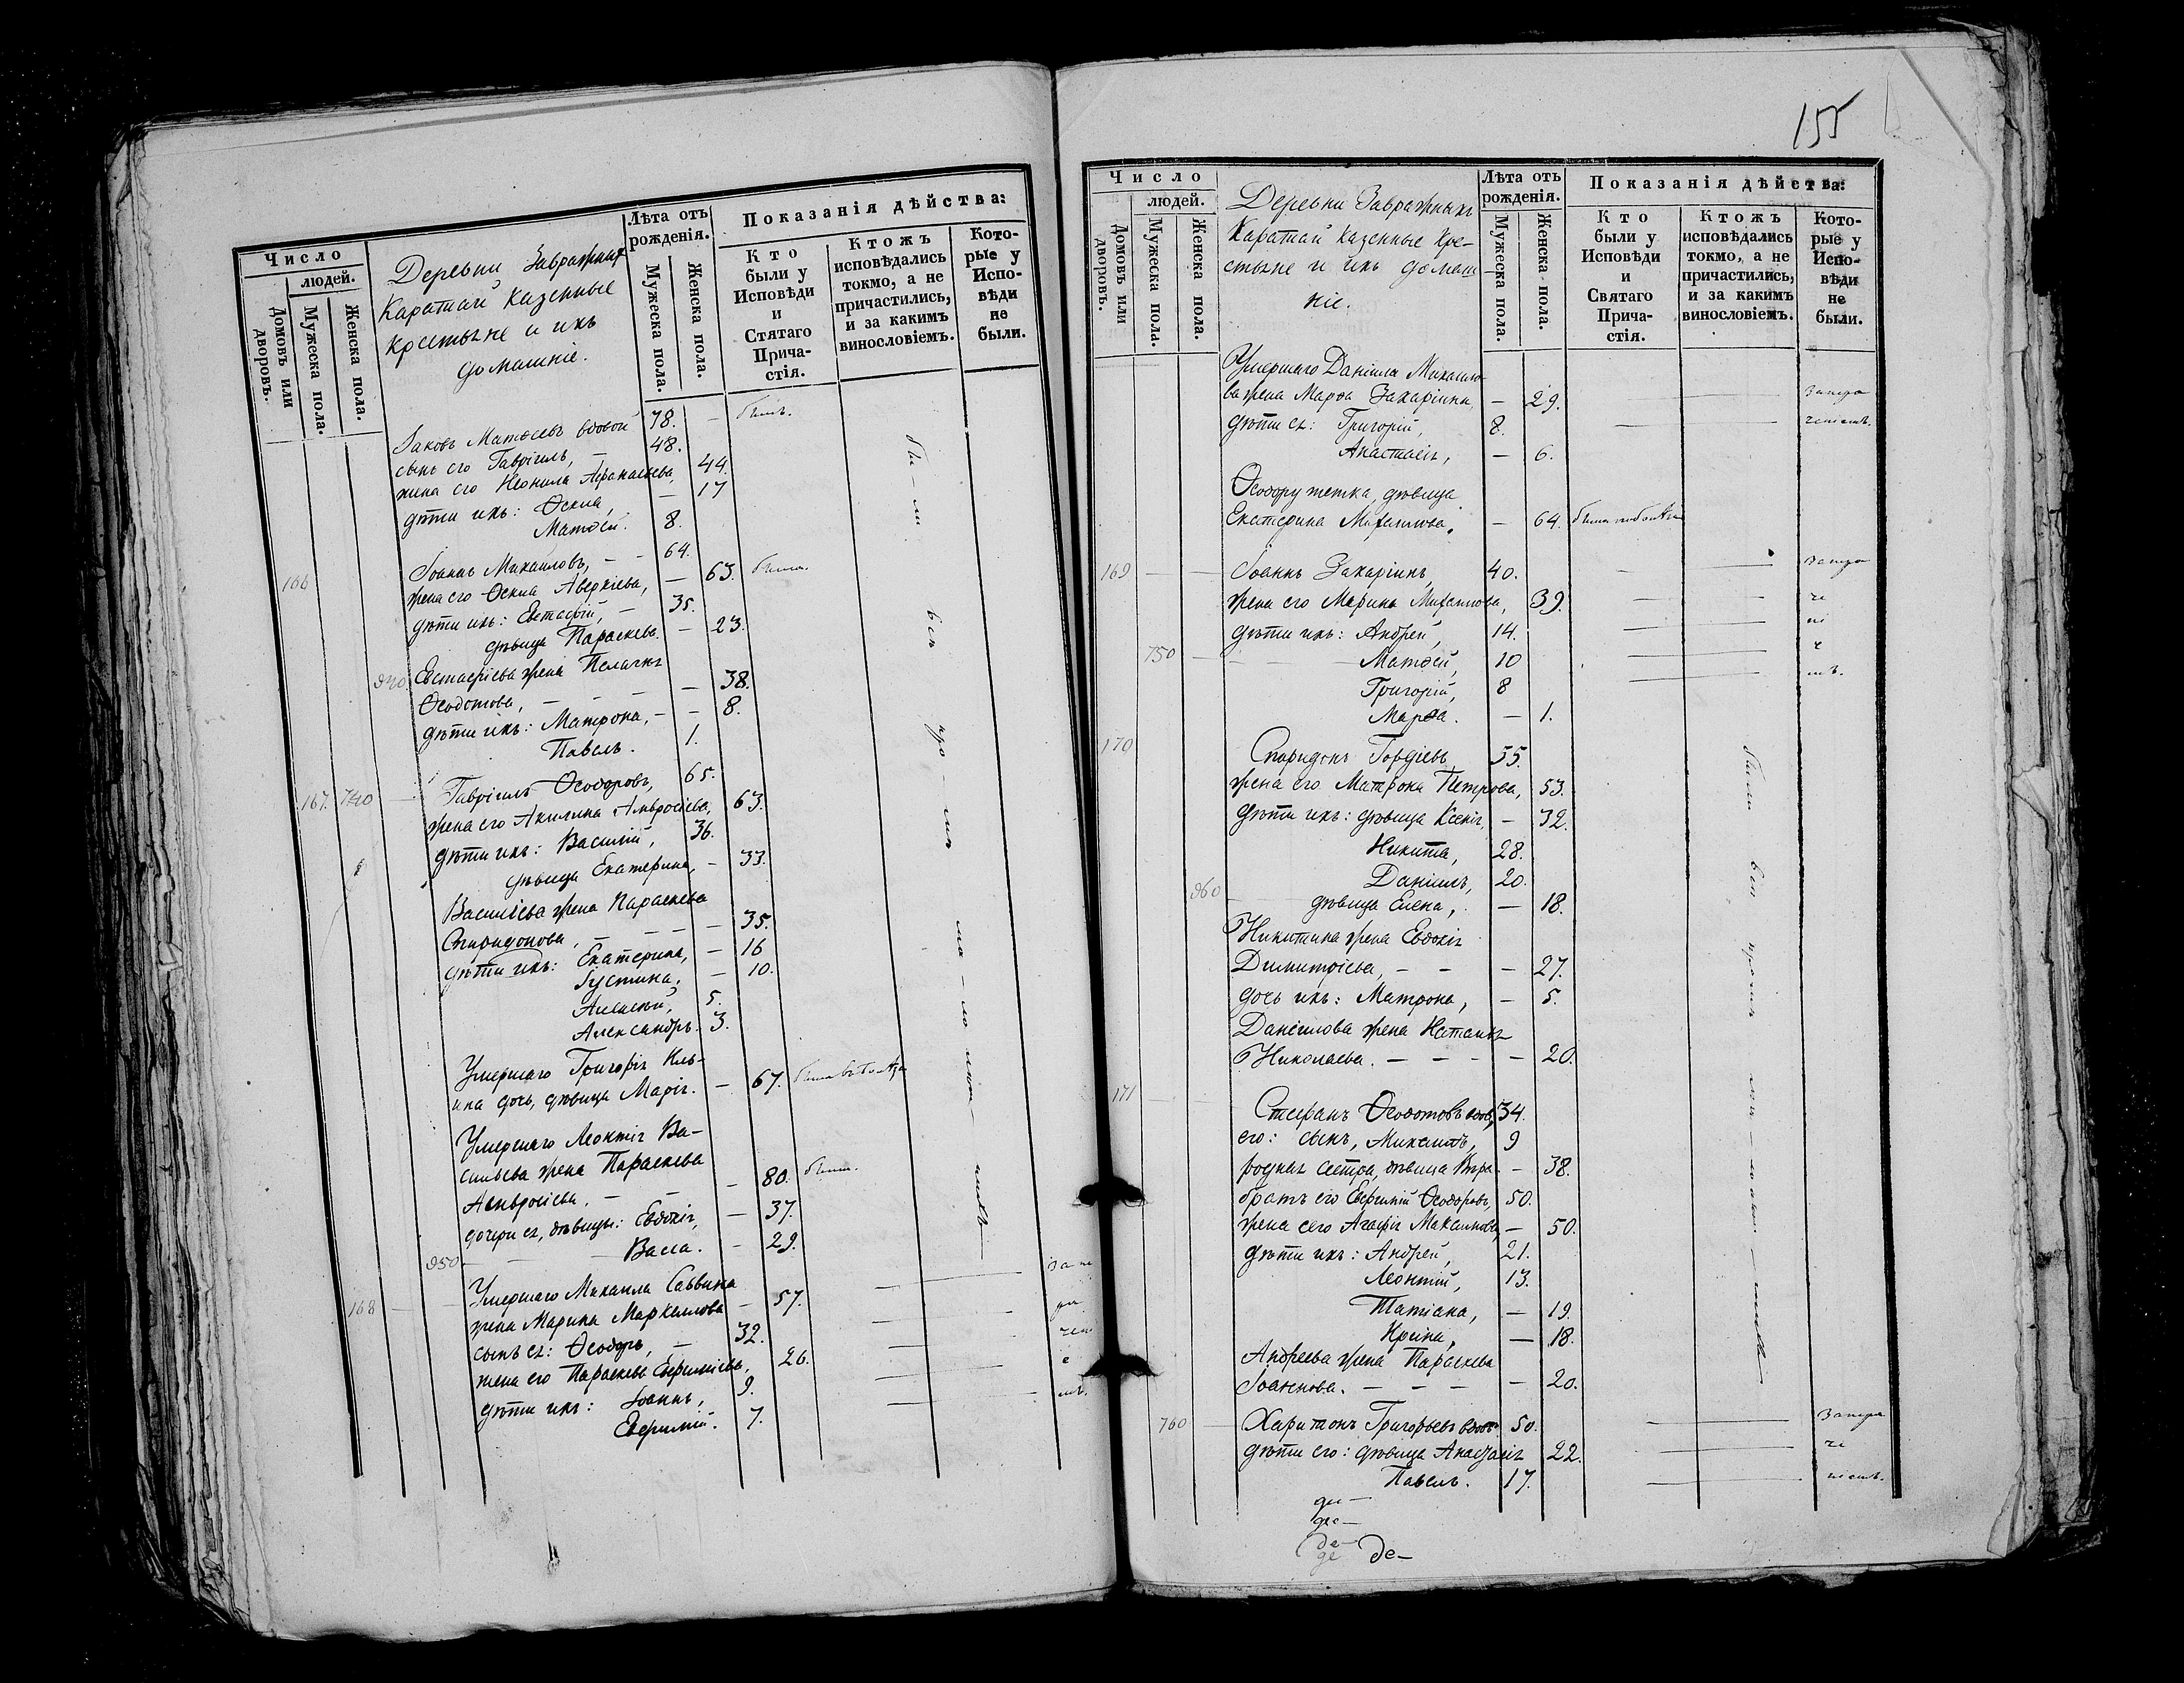 Число
людей.
Домовъ или дворовъ.
Мужеска пола.
Женска пола.
Деревни Завражныхъ
Каратай казенные
крестьяне и ихъ
домашніе.
Лѣта отъ рожденія.
Мужеска пола.
Женска пола.
Показанія дѣйства:
Кто были у Исповѣди и Стятаго Прича-стія.
Ктожъ исповѣдались токмо, а не причастились, и за какимъ винословіемъ.
Кото-рые у Испо-вѣди не были.
Іаковъ Матѳеевъ вдовой 78. — былъ.
сынъ его Гавріилъ, — 48.
жена его Неонила Аѳанасьева, 44.
дѣти ихъ: Ѳекла, — 17
Матѳей. 8.
166 Іоаннъ Михаиловъ, — — 64.
жена его Ѳекла Аверкіева, — 63. была.
дѣти ихъ: Евстафій, — 35.
дѣвица Параскева. — 23.
940 Евстафіева жена Пелагія
Ѳеодотова, — — — 38.
дѣти ихъ: Матрона, — — 8.
Павелъ. 1.
167. 740 — Гавріилъ Ѳеодоровъ, 65.
жена его Акилина Амвросіева, 63.
дѣти ихъ: Василій, 36.
дѣвица Екатерина, — 33.
Василіева жена Параскева
Спиридонова, — — — 35.
дѣти ихъ: Екатерина, — 16
Іустина, — 10.
Алексѣй, 5.
Александръ. 3.
Умершаго Григорія Иль-
ина дочь, дѣвица Марія. — 67.
Умершаго Леонтія Ва-
сильева жена Параскева
Амвросіева, — — — 80. была.
дочери ея, дѣвицы: Евдокія, — 37.
950 — Васса. — 29.
168 — — Умершаго Михаила Саввина
жена Марина Маркелова — 57.
сынъ ея: Ѳеодоръ, — 32.
жена его Параскева Евфиміева, 26.
дѣти ихъ: Іоаннъ, 9.
Евфимій. 7.
155
Число
людей.
Домовъ или дворовъ.
Мужеска пола.
Женска пола.
Деревни Завражныхъ
Каратай казенные кре-
стьяне и ихъ домаш-
ніе.
Лѣта отъ рожденія.
Мужеска пола.
Женска пола.
Показанія дѣйства:
Кто были у Исповѣди и Святаго Прича-стія.
Ктожъ исповѣдались токмо, а не причастились, и за какимъ винословіемъ.
Кото-рые у Испо-вѣди не были.
Умершаго Даніила Михаило-
ва жена Марѳа Захаріина, — 29.
дѣти ея: Григорій, 8.
Анастасія, — 6.
Ѳеодору тетка, дѣвица
Екатерина Михаилова. — 64.
169 — — Іоаннъ Захаріинъ, 40.
жена его Марина Михаилова, 39.
дѣти ихъ: Андрей, 14.
750 — — Матѳей, 10
Григорій, 8
Марѳа. — 1.
170 Спиридонъ Гордіевъ, 55.
жена его Матрона Петрова, 53.
дѣти ихъ: дѣвица Ксенія, — 32.
Никита, 28.
Даніилъ, 20.
960 — дѣвица Елена, — 18.
Никитина жена Евдокія
Димитріева, — — — 27.
дочь ихъ: Матрона, — 5.
Даніилова жена Наталія
Николаева. — — — — 20.
171 — — Стефанъ Ѳеодотовъ вдов, 34.
его: сынъ, Михаилъ, 9
родная сестра, дѣвица Вѣра. — 38.
братъ его Евфимій Ѳеодоровъ, 50.
жена сего Агафія Максимова, — 50.
дѣти ихъ: Андрей, 21.
Леонтій, 13.
Татіана, — 19.
Ирина, — 18.
Андреева жена Параскева
Іоаннова. — — — — 20.
760 — Харитонъ Григорьевъ вдов. 50.
дѣти его: дѣвица Анастасія 22.
Павелъ. 17.
де—